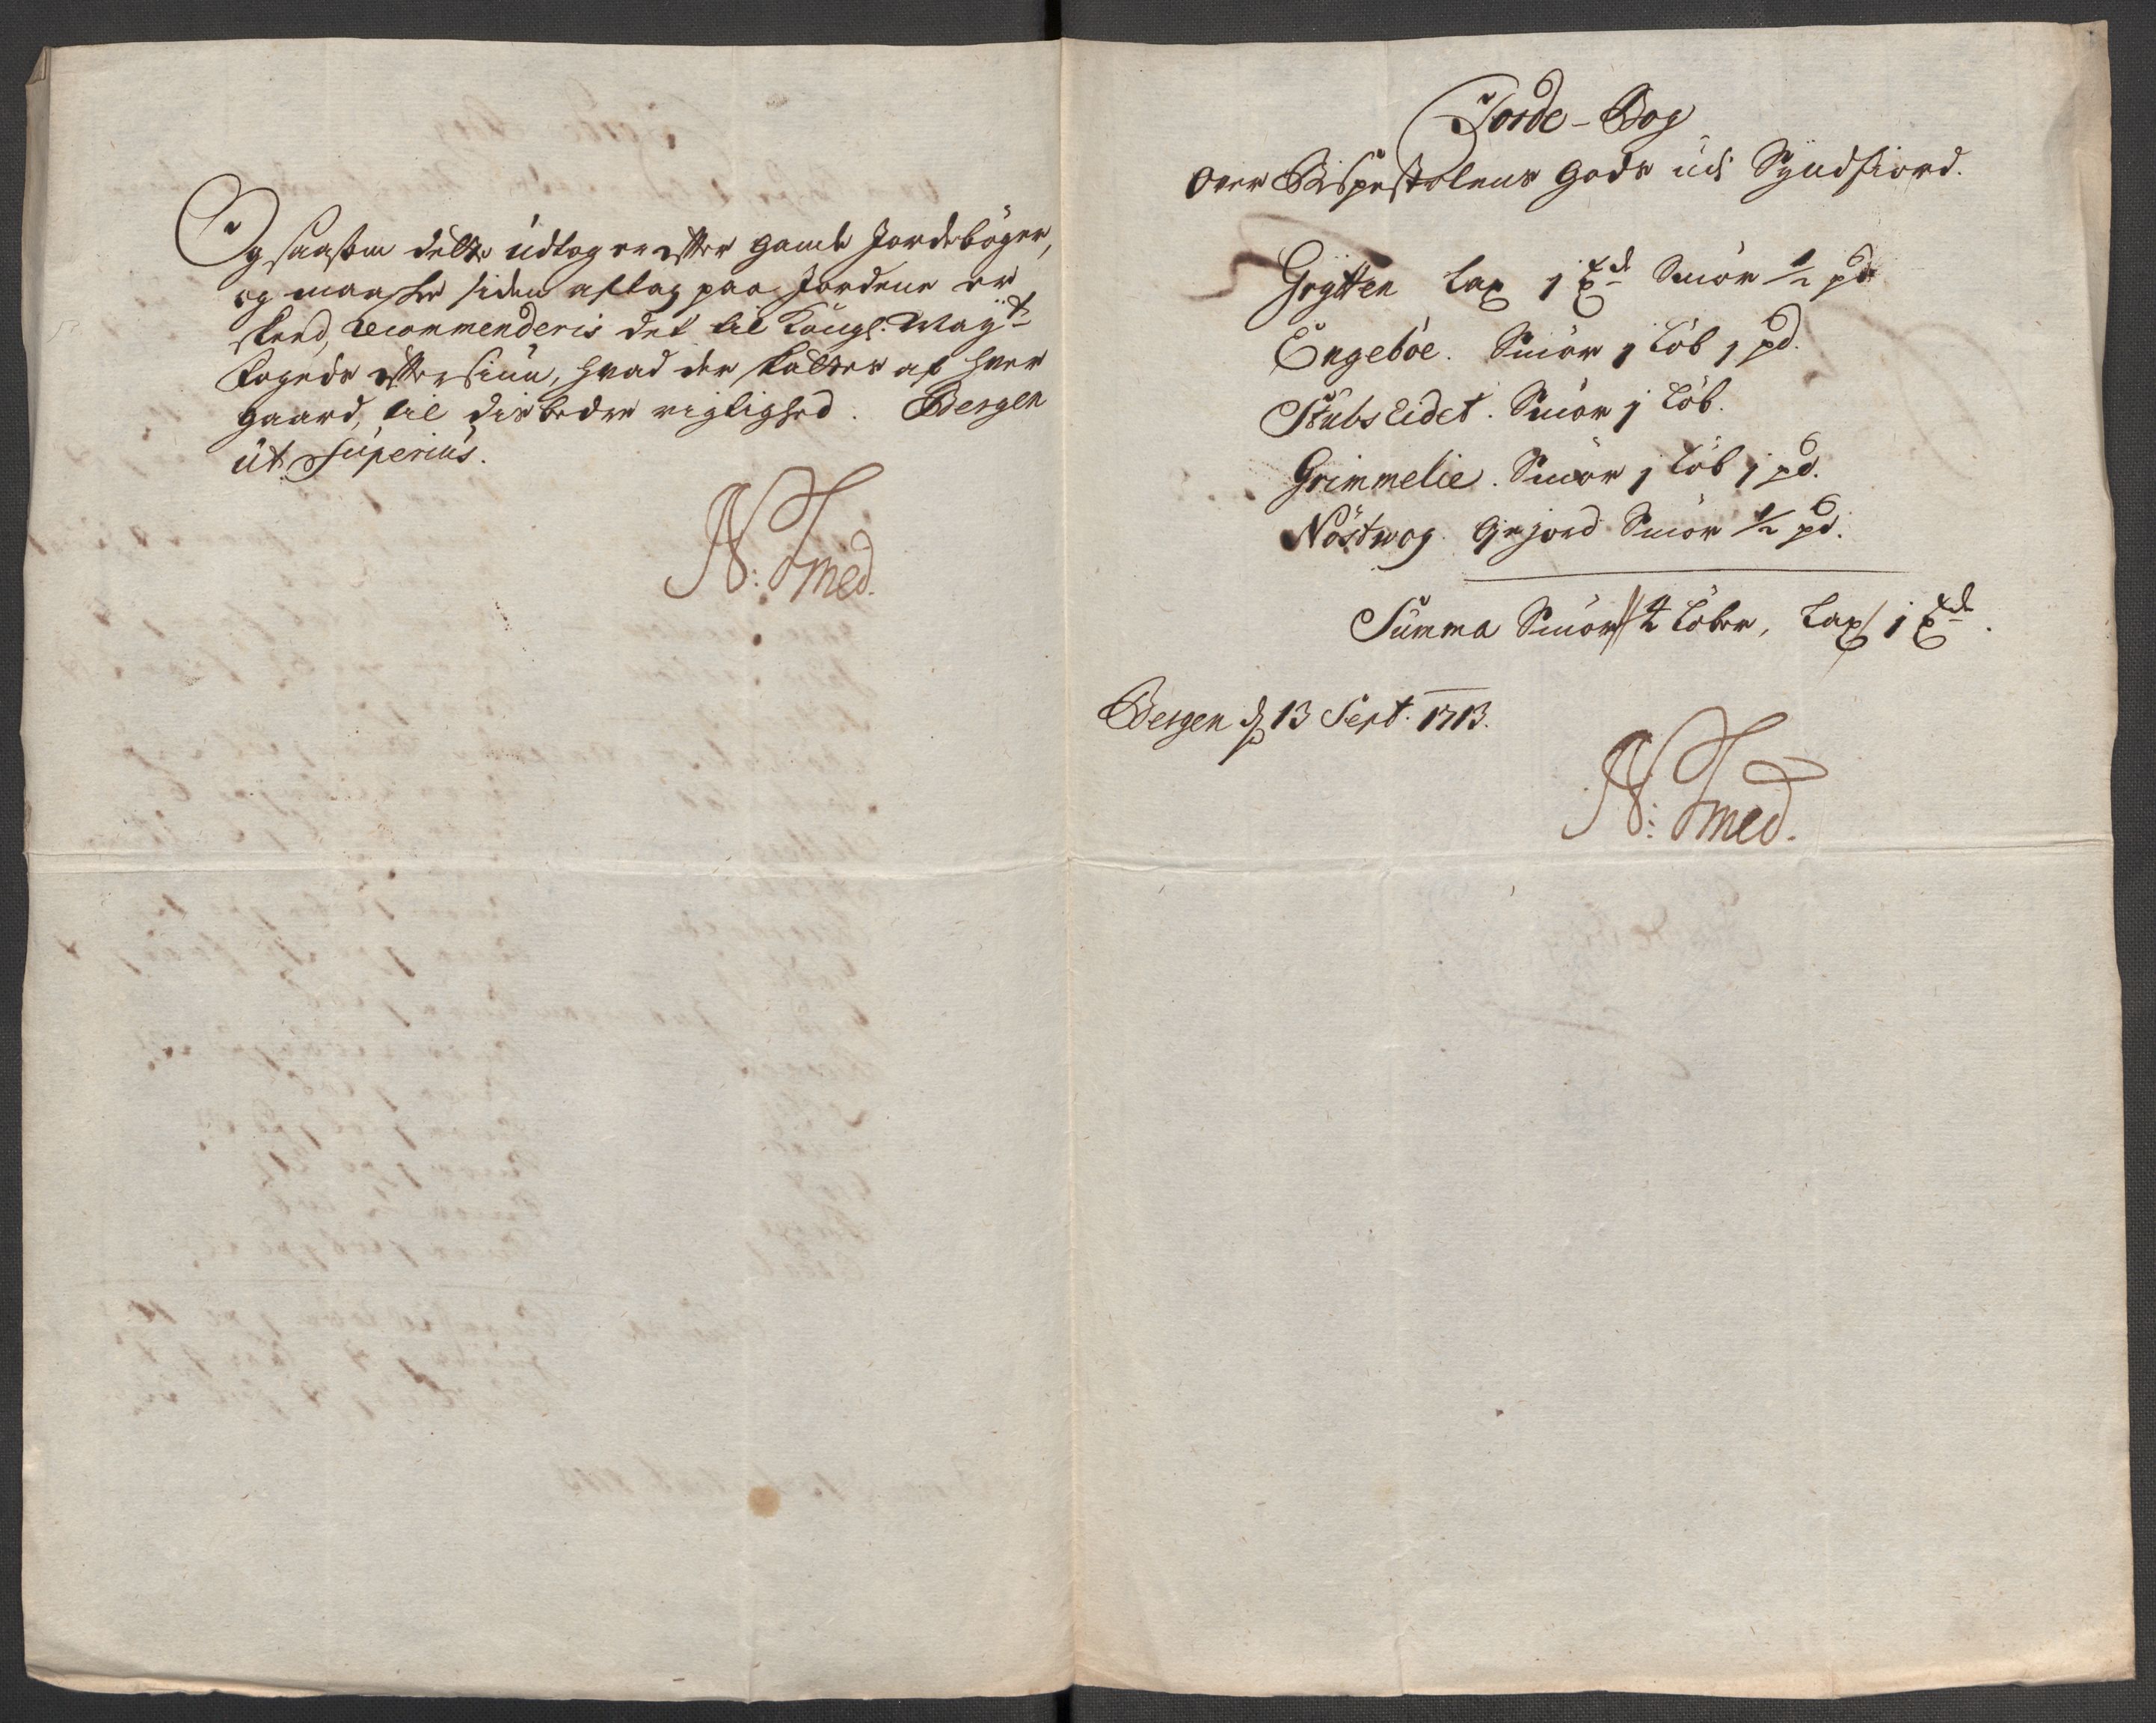 Og saasom dette udtog er efter gamle Jordebøger,
og maaskee siden aflag paa Jordene er
skeed, recommenderis det til Kongl: Mayts
Fogeds eftersiun, hvad der skattes af hver
gaard, til dis bedre rigtighed. Bergen
ut superius.
N: Smed.
Jorde-Bog
over Bispestolens Gods udi Syndfiord.
Grytten Lax 1 Smör ½ pd.
Engeböe. Smör j Löb j pd.
Stubs Eidet. Smör j Löb.
Grimmelie. Smör j Löb j pd.
Nöstwog. Ørjord Smör ½ pd.
Summa Smör 4 Löber, Lax 1
Bergen d. 13 Sept. 1713.
N: Smed.